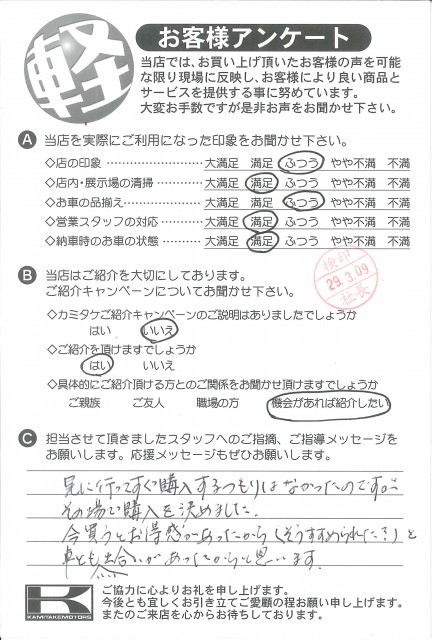 軽
お客様アンケート
当店では、お買い上げ頂いたお客様の声を可能
な限り現場に反映し、お客様により良い商品と
サービスを提供する事に努めています。
大変お手数ですが是非お声をお聞かせ下さい。
A 当店を実際にご利用になった印象をお聞かせ下さい。
◇店の印象 ………………… 大満足 満足 ふつう やや不満 不満
◇店内・展示場の清掃 ……… 大満足 満足 ふつう やや不満 不満
◇お車の品揃え …………… 大満足 満足 ふつう やや不満 不満
◇営業スタッフの対応 ……… 大満足 満足 ふつう やや不満 不満
◇納車時のお車の状態 ……… 大満足 満足 ふつう やや不満 不満
検印
29.3.09
社長
B 当店はご紹介を大切にしております。
ご紹介キャンペーンについてお聞かせ下さい。
◇カミタケご紹介キャンペーンのご説明はありましたでしょうか
はい いいえ
◇ご紹介を頂けますでしょうか
はい いいえ
◇具体的にご紹介頂ける方とのご関係をお聞かせ頂けますでしょうか
ご親族 ご友人 職場の方 機会があれば紹介したい
C 担当させて頂きましたスタッフへのご指摘、ご指導メッセージを
お願いします。応援メッセージもぜひお願いします。
見に行ってすぐ購入するつもりはなかったのですが
その場で購入を決めました。
今買うとお得感があったから(そうすすめられた?)と
車とも出合いがあったからと思います。
K
KAMITAKEMOTORS
ご協力に心よりお礼を申し上げます。
今後とも宜しくお引き立てご愛顧の程お願い申し上げます。
またのご来店を心からお待ちしております。